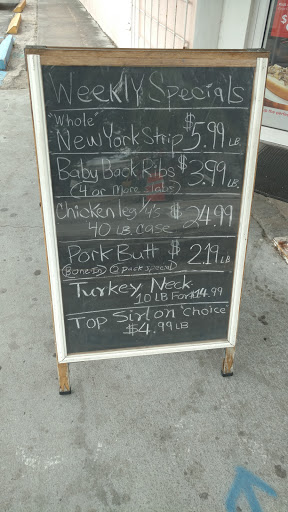 Weekly Specials
"Whole"
New York Strip $5.99 LB.
Baby Back Ribs $3.99 LB.
(4 or More slabs)
Chicken leg 1/4's $24.99
40 LB. case
Pork Butt $2.19 LB
(Bone In) (2 pack special)
Turkey Neck
10 LB For $14.99
Top Sirlon "Choice"
$4.99 LB